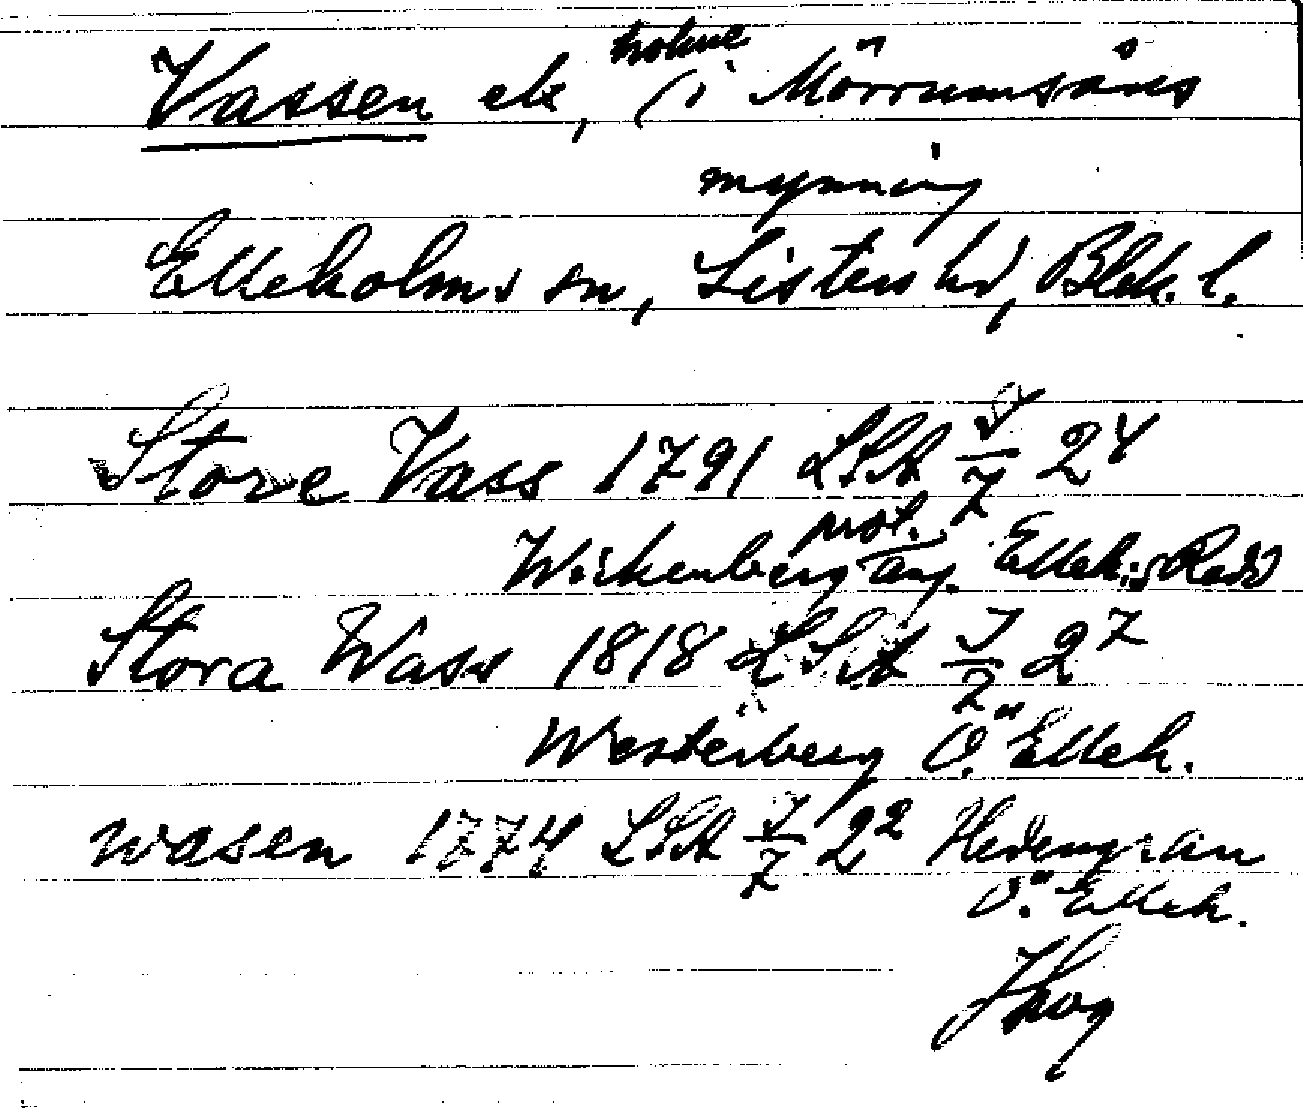 Vassen ek, holme (i Mörrumsåns
mynning
Elleholms sn, Listers hd, Blek. l.
Store Vass 1791 LSA 7 24
Wirkenberg prot. ang. Elleh:s Radd
Stora Wass 1818 LSA 27
Westerberg Ö. Elleh.
wasen 1774 LSA 22 Hedengran
Ö. Elleh.